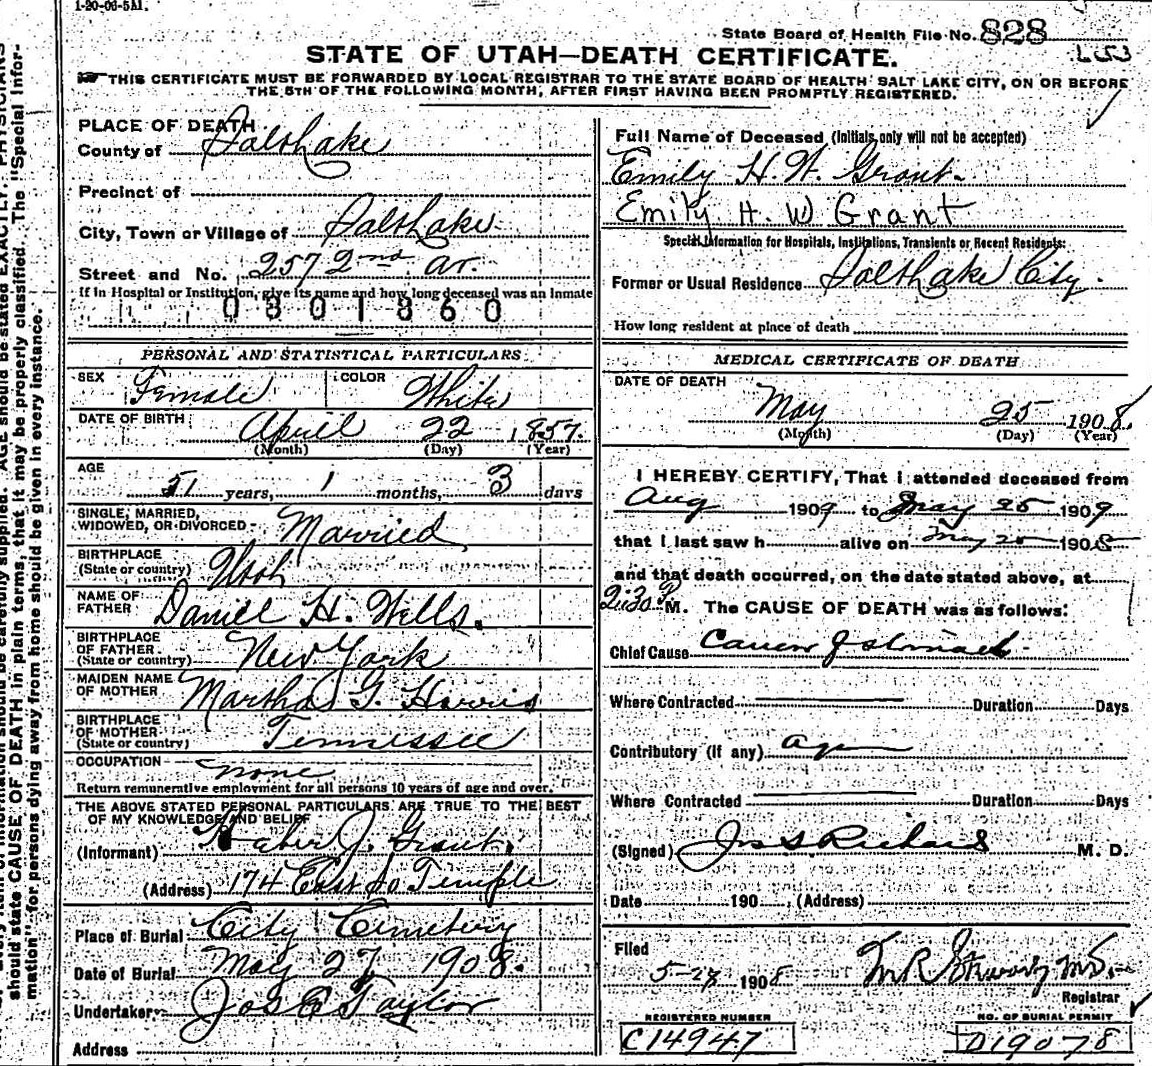 1-20-06-5M.
State Board of Health File No. 828
STATE OF UTAH—DEATH CERTIFICATE.
THIS CERTIFICATE MUST BE FORWARDED BY LOCAL REGISTRAR TO THE STATE BOARD OF HEALTH SALT LAKE CITY, ON OR BEFORE
THE 5TH OF THE FOLLOWING MONTH, AFTER FIRST HAVING BEEN PROMPTLY REGISTERED.
PLACE OF DEATH
County of Salt Lake
Precinct of
City, Town or Village of Salt Lake
Street and No. 257 2nd Av.
If in Hospital or Institution, give its name and how long deceased was an Inmate
0301860
PERSONAL AND STATISTICAL PARTICULARS
SEX Female COLOR White
DATE OF BIRTH April 22 1857.
(Month) (Day) (Year)
AGE
51 years, 1 months, 3 days
SINGLE, MARRIED,
WIDOWED, OR DIVORCED - Married
BIRTHPLACE
(State or country) Utah
NAME OF
FATHER Daniel H. Wells.
BIRTHPLACE
OF FATHER
(State or country) New York
MAIDEN NAME
OF MOTHER Martha G. Harris
BIRTHPLACE
OF MOTHER
(State or country) Tennessee
OCCUPATION none
Return remunerative employment for all persons 10 years of age and over.
THE ABOVE STATED PERSONAL PARTICULARS ARE TRUE TO THE BEST
OF MY KNOWLEDGE AND BELIEF
(Informant) Heber J. Grant.
(Address) 174 East So Temple
Place of Burial City Cemetery
Date of Burial May 27 1908.
Undertaker Jos E Taylor
Address
Full Name of Deceased (Initials only will not be accepted)
Emily H. W. Grant.
Emily H. W Grant
Special Information for Hospitals, Institutions, Transients or Recent Residents:
Former or Usual Residence Salt Lake City.
How long resident at place of death
MEDICAL CERTIFICATE OF DEATH
DATE OF DEATH
May 25 1908.
(Month) (Day) (Year)
I HEREBY CERTIFY, That I attended deceased from
Aug 1909 to May 25 1909
that I last saw h alive on May 25 1908
and that death occurred, on the date stated above, at
2:30 P M. The CAUSE OF DEATH was as follows:
Chief Cause Cancer of stomach
Where Contracted Duration Days
Contributory (if any)
Where Contracted Duration Days
(Signed) Jos S Richards M. D.
Date 190 , (Address)
Filed
5-27 1908
Registrar
REGISTERED NUMBER
C14947
NO. OF BURIAL PERMIT
D19078